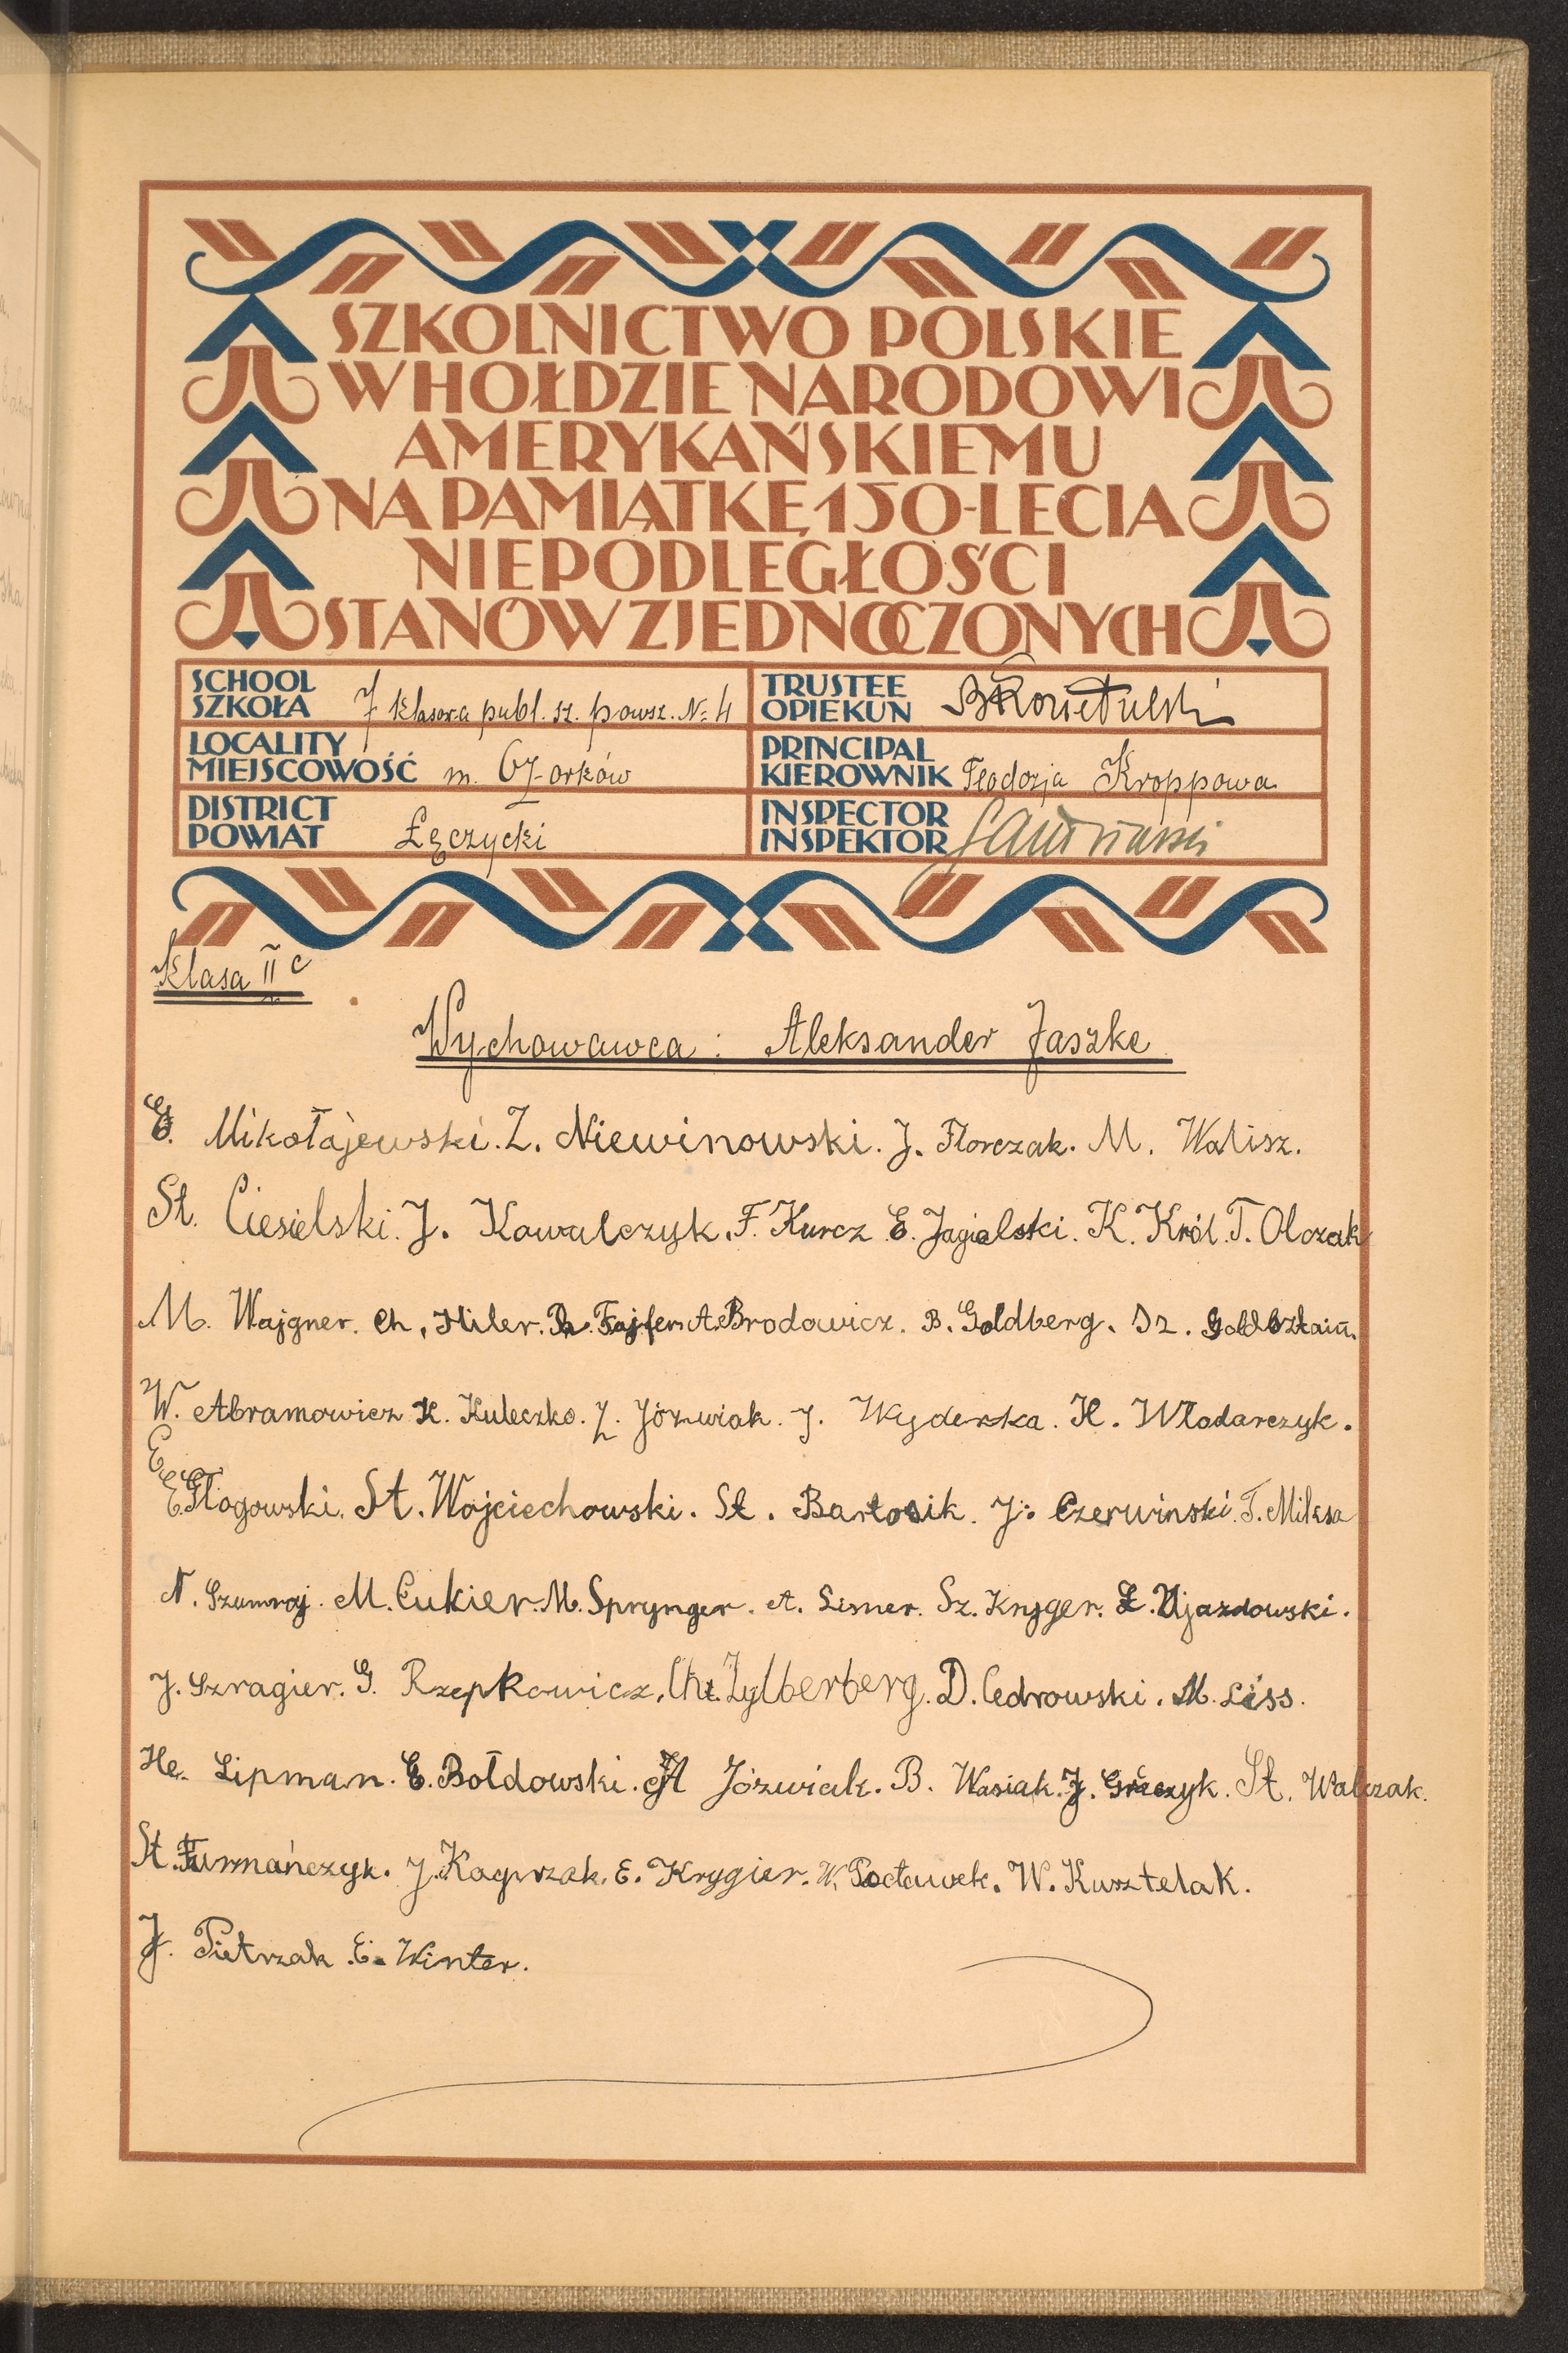 SZKOLNICTWO POLSKIE
W HOŁDZIE NARODOWI
AMERYKAŃSKIEMU
NA PAMIĄTKĘ 150-LECIA
NIEPODLEGŁOŚCI
STANÓW ZJEDNOCZONYCH
SCHOOL
SZKOŁA 7 klasowa publ. sz. powsz. № 4
TRUSTEE
OPIEKUN
LOCALITY
MIEJSCOWOŚĆ m. Ozorków
PRINCIPAL
KIEROWNIK Kroppowa
DISTRICT
POWIAT Łęczycki
INSPECTOR
INSPEKTOR
Klasa II c
Wychowawca: Aleksander Jaszke
E. Mikołajewski. Z. Niewinowski. J. Florczak. M. Walisz.
St. Ciesielski. J. Kowalczyk. F. Kurcz E. Jagielski. K. Król. T. Olczak
M. Wajgner. Ch. Hiler. Fajfer. A. Brodowicz. B. Goldberg. Sz. Goldsztain.
W. Abramowicz H. Kuleczko. Z. Jóźwiak. J. Wyderska. H. Włodarczyk.
E
E. Głogowski. St. Wojciechowski. St. Bartosik. J. Czerwinski. T. Miksa
N. Szumraj. M. Cukier. M. Sprynger. A. Simer. Sz. Knyger. Z. Ujazdowski.
J. Szragier. G. Rzepkowicz. Ch. Zylberberg. D. Cedrowski. M. Liss.
He. Lipman. E. Bołdowski. Józwiak. B. Wasiak. J. Graczyk. St. Walczak.
St. Furmańczyk. J. Kacprzak. E. Krygier. W. Pacławek. W. Kusztelak.
J. Pietrzak E. Winter.